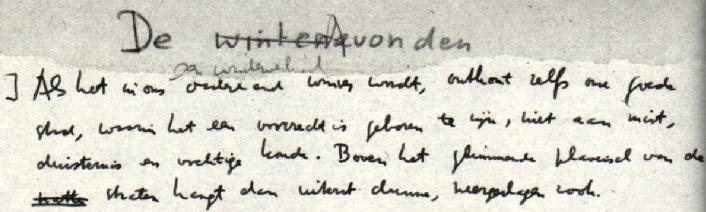 De winterAvonden
en winterheid
] Als het in ons vaderland winter wordt, ontkomt zelfs onze goede
stad, waarin het een voorrecht is geboren te zijn, niet aan mist,
duisternis en vochtige koude. Boven het glimmende plaveisel van de
natte straten hangt dan uiterst dunne, neergeslagen rook.